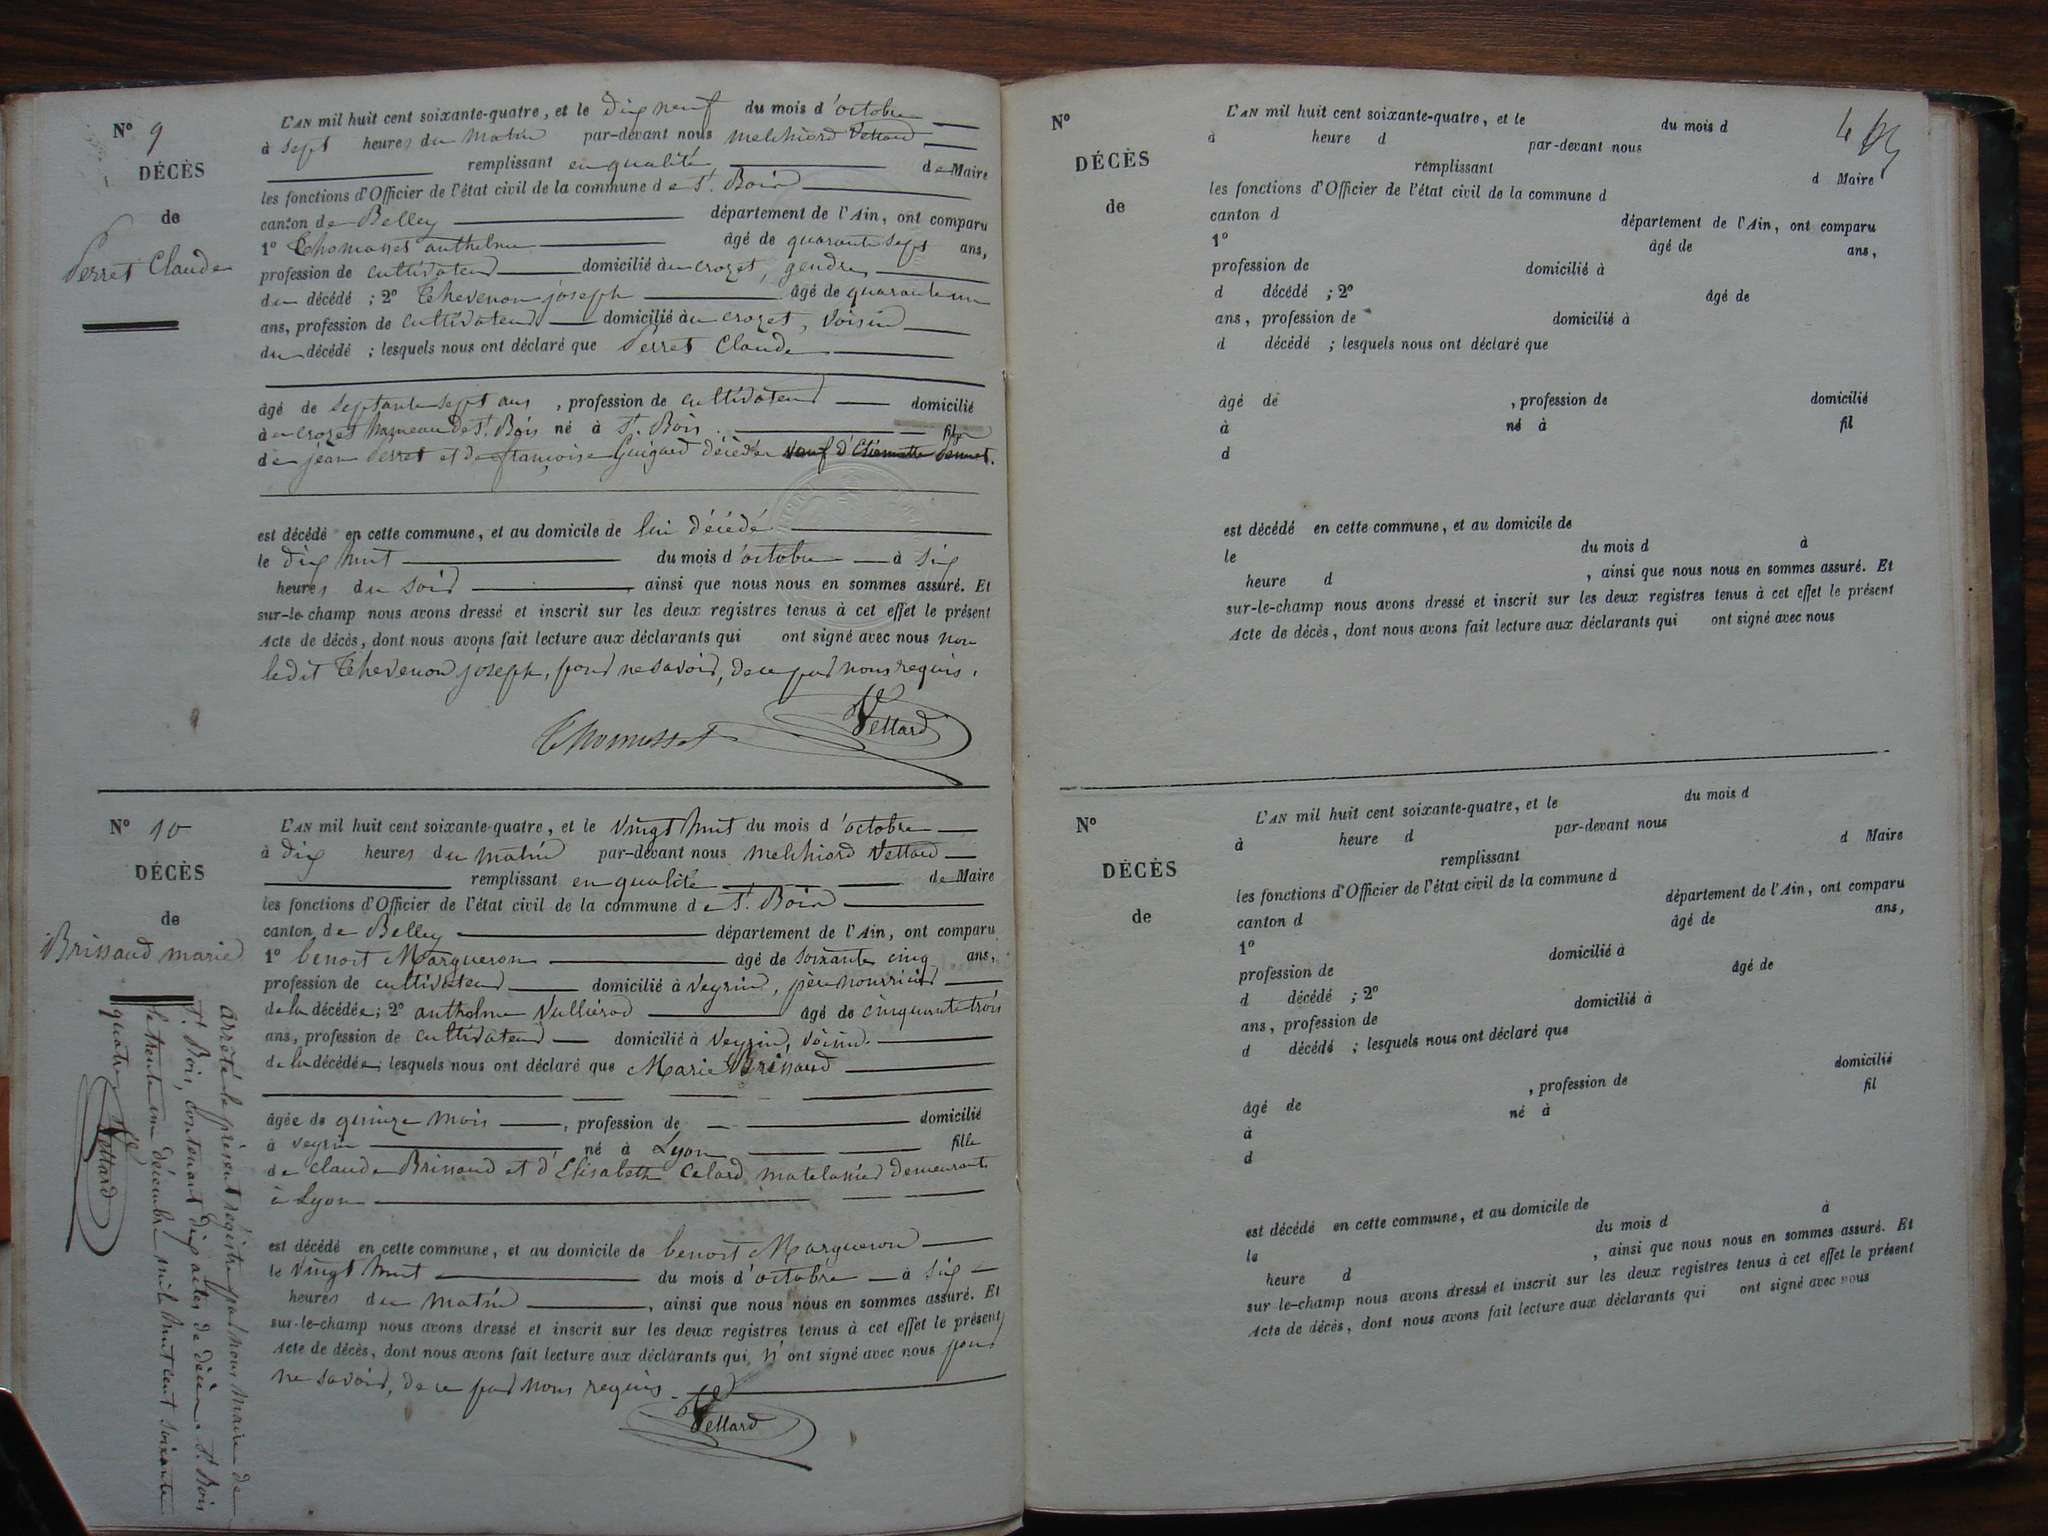 N° 9
DÉCÈS
de
Perret Claude
L'AN mil huit cent soixante-quatre, et le dix neuf du mois d'octobre
à sept heures du matin par-devant nous melchiord Vettard
remplissant en qualité de Maire
les fonctions d'Officier de l'état civil de la commune de St. Bois
canton de Belley département de l'Ain, ont comparu
1° Thomasset anthelme âgé de quarante sept ans,
profession de cultivateur domicilié au crozet, gendre
du décédé ; 2° Thevenon joseph âgé de quarante un
ans, profession de cultivateur domicilié au crozet, voisin
du décédé ; lesquels nous ont déclaré que Perret Claude
âgé de septante sept ans, profession de cultivateur domicilié
au crozet hameau de St. Bois né à St. Bois fils
de jean Perret et de françoise Guigard décédés veuf d'Etiennette
est décédé en cette commune, et au domicile de lui décédé
le dix huit du mois d'octobre à six
heures du soir ainsi que nous nous en sommes assuré. Et
sur-le-champ nous avons dressé et inscrit sur les deux registres tenus à cet effet le présent
Acte de décès, dont nous avons fait lecture aux déclarants qui ont signé avec nous non
ledit Thevenon joseph, pour ne savoir, de ce par nous requis.
Thomasset Vettard
N° 10
DÉCÈS
de
Brissaud marie
L'AN mil huit cent soixante-quatre, et le vingt huit du mois d'octobre
à dix heures du matin par-devant nous melchiord Vettard
remplissant en qualité de Maire
les fonctions d'Officier de l'état civil de la commune de St. Bois
canton de Belley département de l'Ain, ont comparu
1° benoit Margueron âgé de soixante cinq ans,
profession de cultivateur domicilié à veyrin, père nourricier
de la décédée ; 2° anthelme Vulliérod âgé de cinquante trois
ans, profession de cultivateur domicilié à Veyrin, voisin
de la décédée ; lesquels nous ont déclaré que Marie Brissaud
âgée de quinze mois, profession de domicilié
à veyrin né à Lyon fille
de claude Brissaud et d'Elisabeth Celard matelassier demeurant
à Lyon
est décédé en cette commune, et au domicile de benoit Margueron
le vingt huit du mois d'octobre à six
heures du matin, ainsi que nous nous en sommes assuré. Et
sur-le-champ nous avons dressé et inscrit sur les deux registres tenus à cet effet le présent
Acte de décès, dont nous avons fait lecture aux déclarants qui n'ont signé avec nous pour
ne savoir, de ce par nous requis.
Vettard
arrêté le présent régistre par nous maire de
St. Bois, contenant dix actes de décès. St. Bois
le trente un décembre mil huit cent soixante
quatre
Vettard
4
N°
DÉCÈS
de
L'AN mil huit cent soixante-quatre, et le du mois d
à heure d par-devant nous
remplissant d Maire
les fonctions d'Officier de l'état civil de la commune d
canton d département de l'Ain, ont comparu
1° âgé de ans,
profession de domicilié à
d décédé ; 2° âgé de
ans, profession de domicilié à
d décédé ; lesquels nous ont déclaré que
âgé de , profession de domicilié
à né à fil
d
est décédé en cette commune, et au domicile de
le du mois d à
heure d , ainsi que nous nous en sommes assuré. Et
sur-le-champ nous avons dressé et inscrit sur les deux registres tenus à cet effet le présent
Acte de décès, dont nous avons fait lecture aux déclarants qui ont signé avec nous
N°
DÉCÈS
de
L'AN mil huit cent soixante-quatre, et le du mois d
à heure d par-devant nous
remplissant d Maire
les fonctions d'Officier de l'état civil de la commune d
canton d département de l'Ain, ont comparu
1° âgé de ans,
profession de domicilié à
d décédé ; 2° âgé de
ans, profession de domicilié à
d décédé ; lesquels nous ont déclaré que
âgé de , profession de domicilié
à né à fil
d
est décédé en cette commune, et au domicile de
le du mois d à
heure d , ainsi que nous nous en sommes assuré. Et
sur-le-champ nous avons dressé et inscrit sur les deux registres tenus à cet effet le présent
Acte de décès, dont nous avons fait lecture aux déclarants qui ont signé avec nous